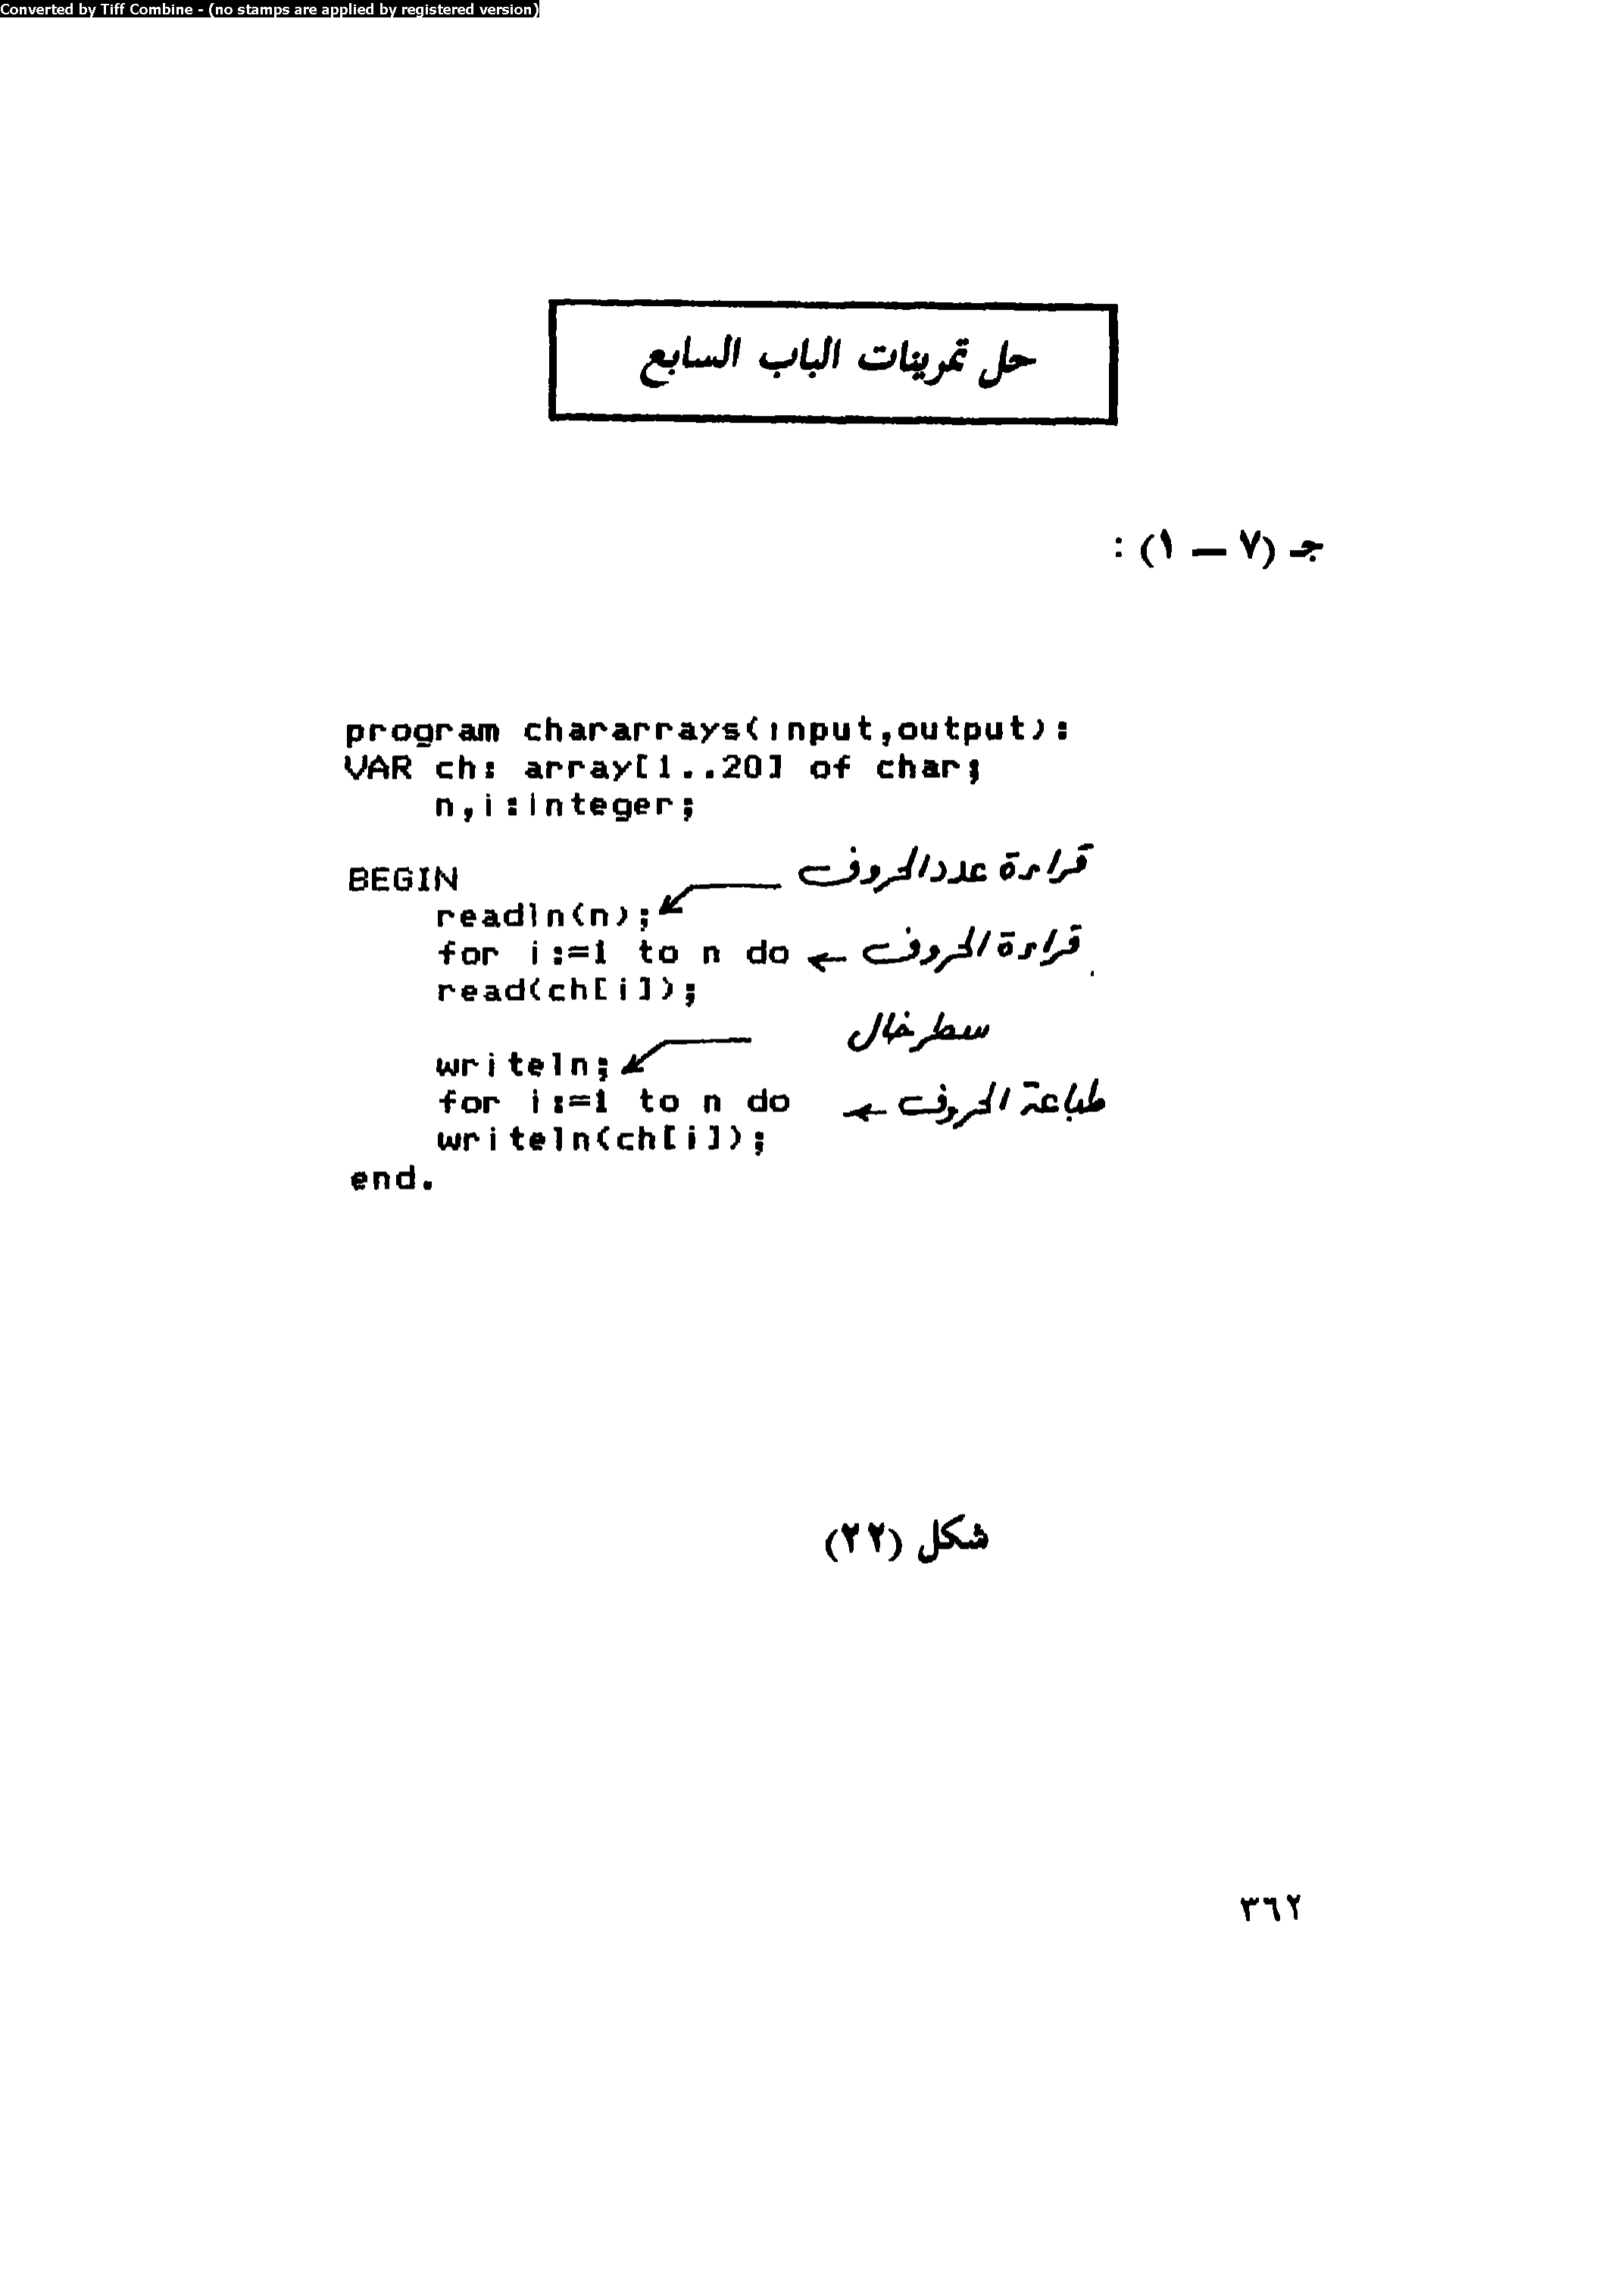 Converted by Tiff Combine - (no stamps are applied by registered version)
حل تمرينات الباب السابع
جـ (٧ — ١) :
program chararrays(input,output);
VAR ch: array[1..20] of char;
n,i:integer;
BEGIN
قراءة عدد الحروف
readln(n);
for i:=1 to n do ← قراءة الحروف
read(ch[i]);
سطر خال
writeln;
for i:=1 to n do ← طباعة الحروف
writeln(ch[i]);
end.
شكل (٢٢)
٣٦٢